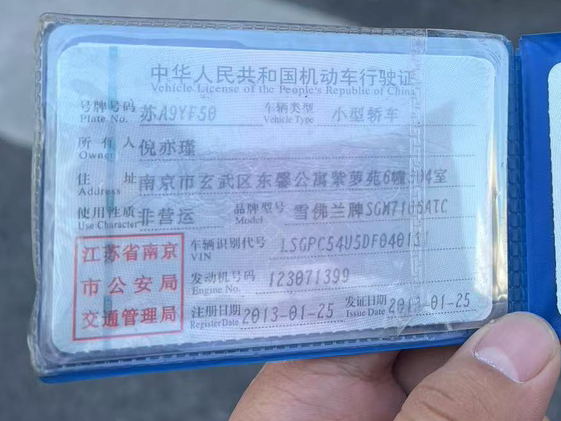 中华人民共和国机动车行驶证
Vehicle License of the People's Republic of China
号牌号码 苏A9YF50 车辆类型 小型轿车
Plate No. Vehicle Type
所有人 倪亦瑾
Owner
住址 南京市玄武区东馨公寓紫萝苑6幢 04室
Address
使用性质 非营运 品牌型号 雪佛兰牌
Use Character Model
江苏省南京
市公安局
交通管理局
车辆识别代号 LSGPC54U5DF04013
VIN
发动机号码 123071399
Engine No.
注册日期 2013-01-25 发证日期 2013-01-25
Register Date Issue Date